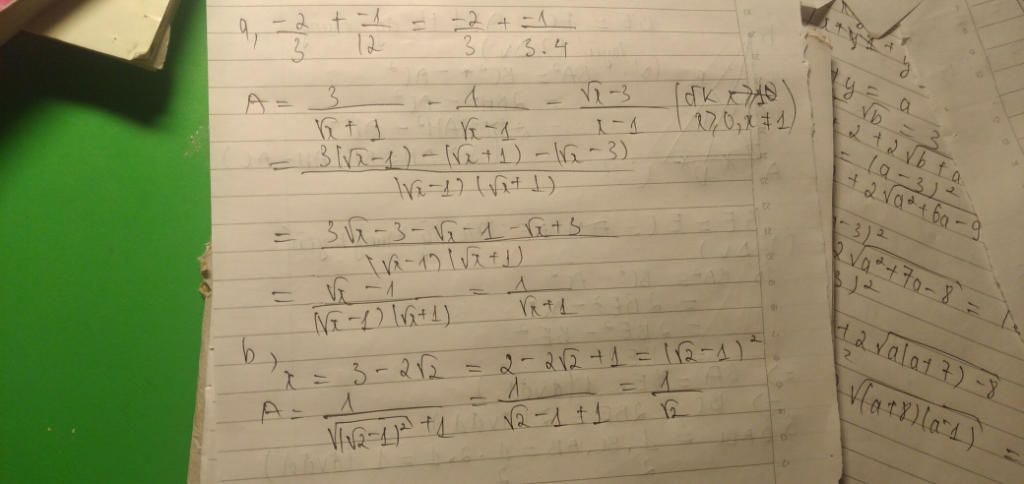 a, -2/3 + -1/12 = -2/3 + -1/3.4
A = 3/(√x + 1) - 1/(√x - 1) - (√x - 3)/(x - 1) (đk x ≥ 0, x ≠ 1)
= (3(√x - 1) - (√x + 1) - (√x - 3))/((√x - 1)(√x + 1))
= (3√x - 3 - √x - 1 - √x + 3)/((√x - 1)(√x + 1))
= (√x - 1)/((√x - 1)(√x + 1)) = 1/(√x + 1)
b,
x = 3 - 2√2 = 2 - 2√2 + 1 = (√2 - 1)²
A = 1/(√(√2 - 1)² + 1) = 1/(√2 - 1 + 1) = 1/√2
y = a
√b = 3
2 + 2√b + a
= (a - 3)²
+ 2√a² + 6a - 9
- 3)²
2√a² + 7a - 8 =
3)²
+ 2√a(a + 7) - 8
√(a + 8)(a - 1) =